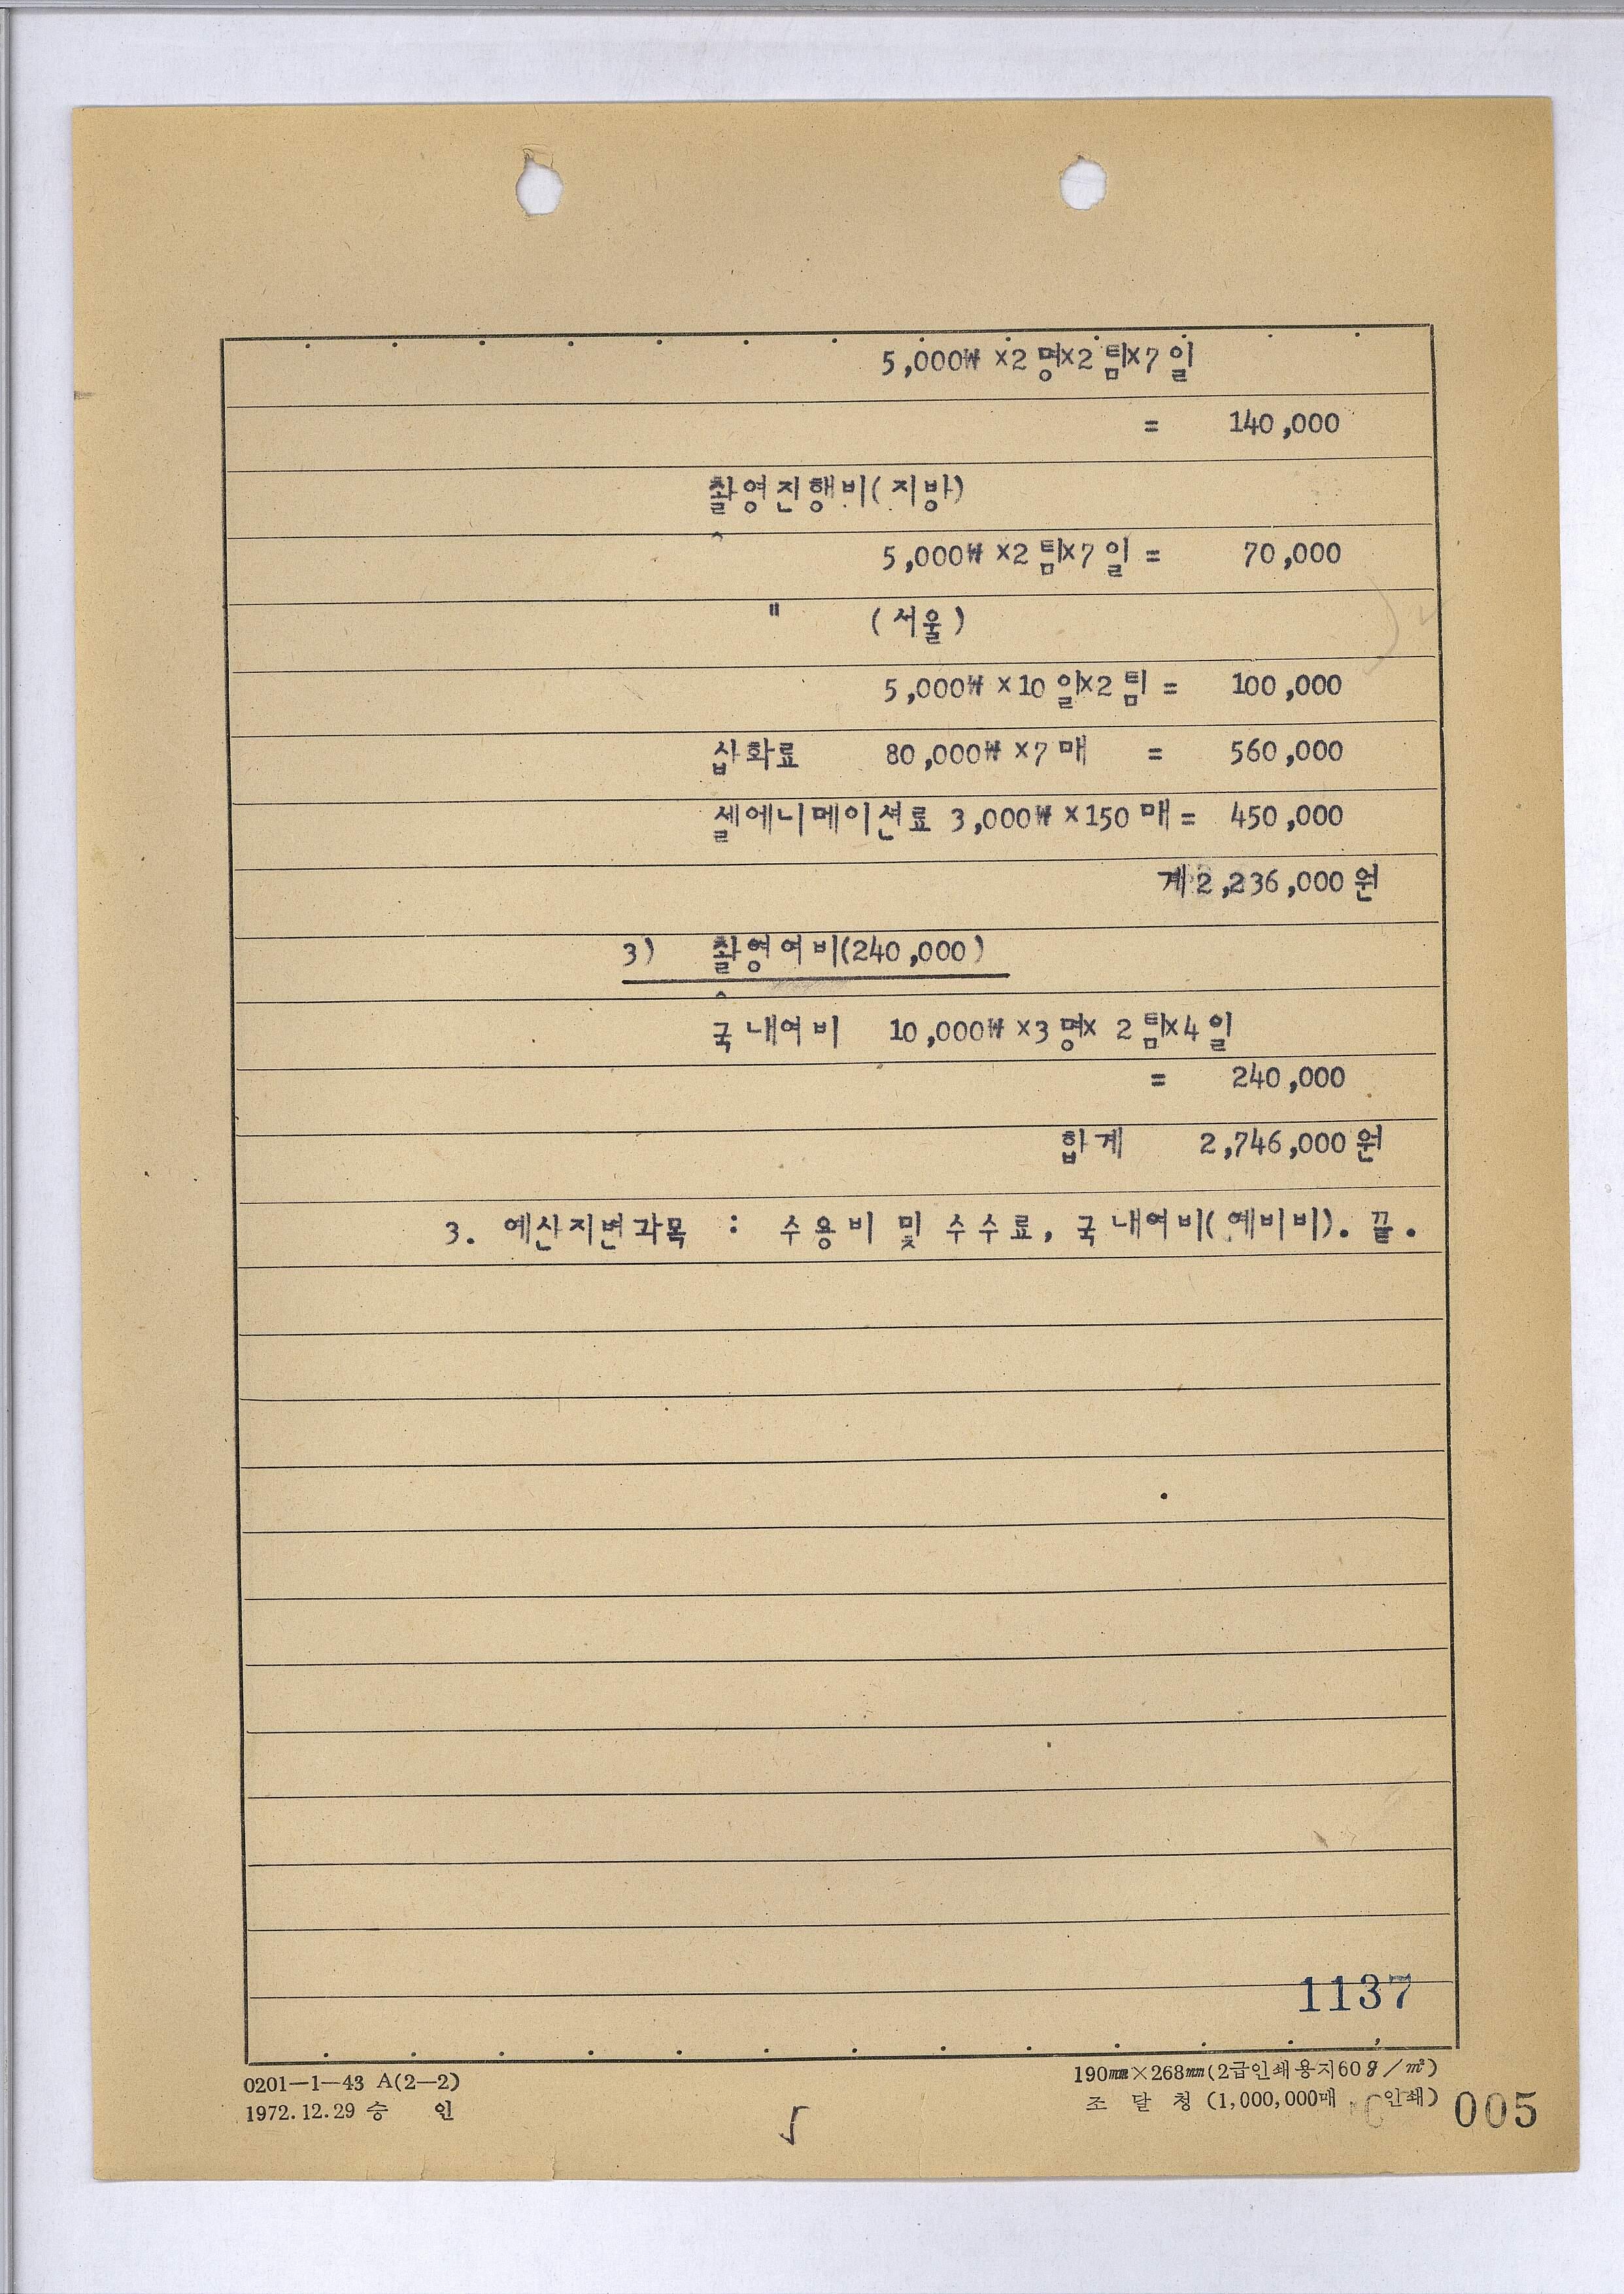 5,000₩ ×2명×2팀×7일
= 140,000
촬영진행비(지방)
5,000₩ ×2팀×7일 = 70,000
" (서울)
5,000₩ ×10일×2팀 = 100,000
삽화료 80,000₩ ×7매 = 560,000
셀에니메이션료 3,000₩ ×150매 = 450,000
계 2,236,000원
3) 촬영여비(240,000)
국내여비 10,000₩ ×3명× 2팀×4일
= 240,000
합계 2,746,000원
3. 예산지변과목 : 수용비 및 수수료, 국내여비(예비비). 끝.
1137
0201-1-43 A(2-2)
1972.12.29 승 인
190㎜×268㎜(2급인쇄용지60g/㎡)
조 달 청 (1,000,000매 인쇄)
005
5